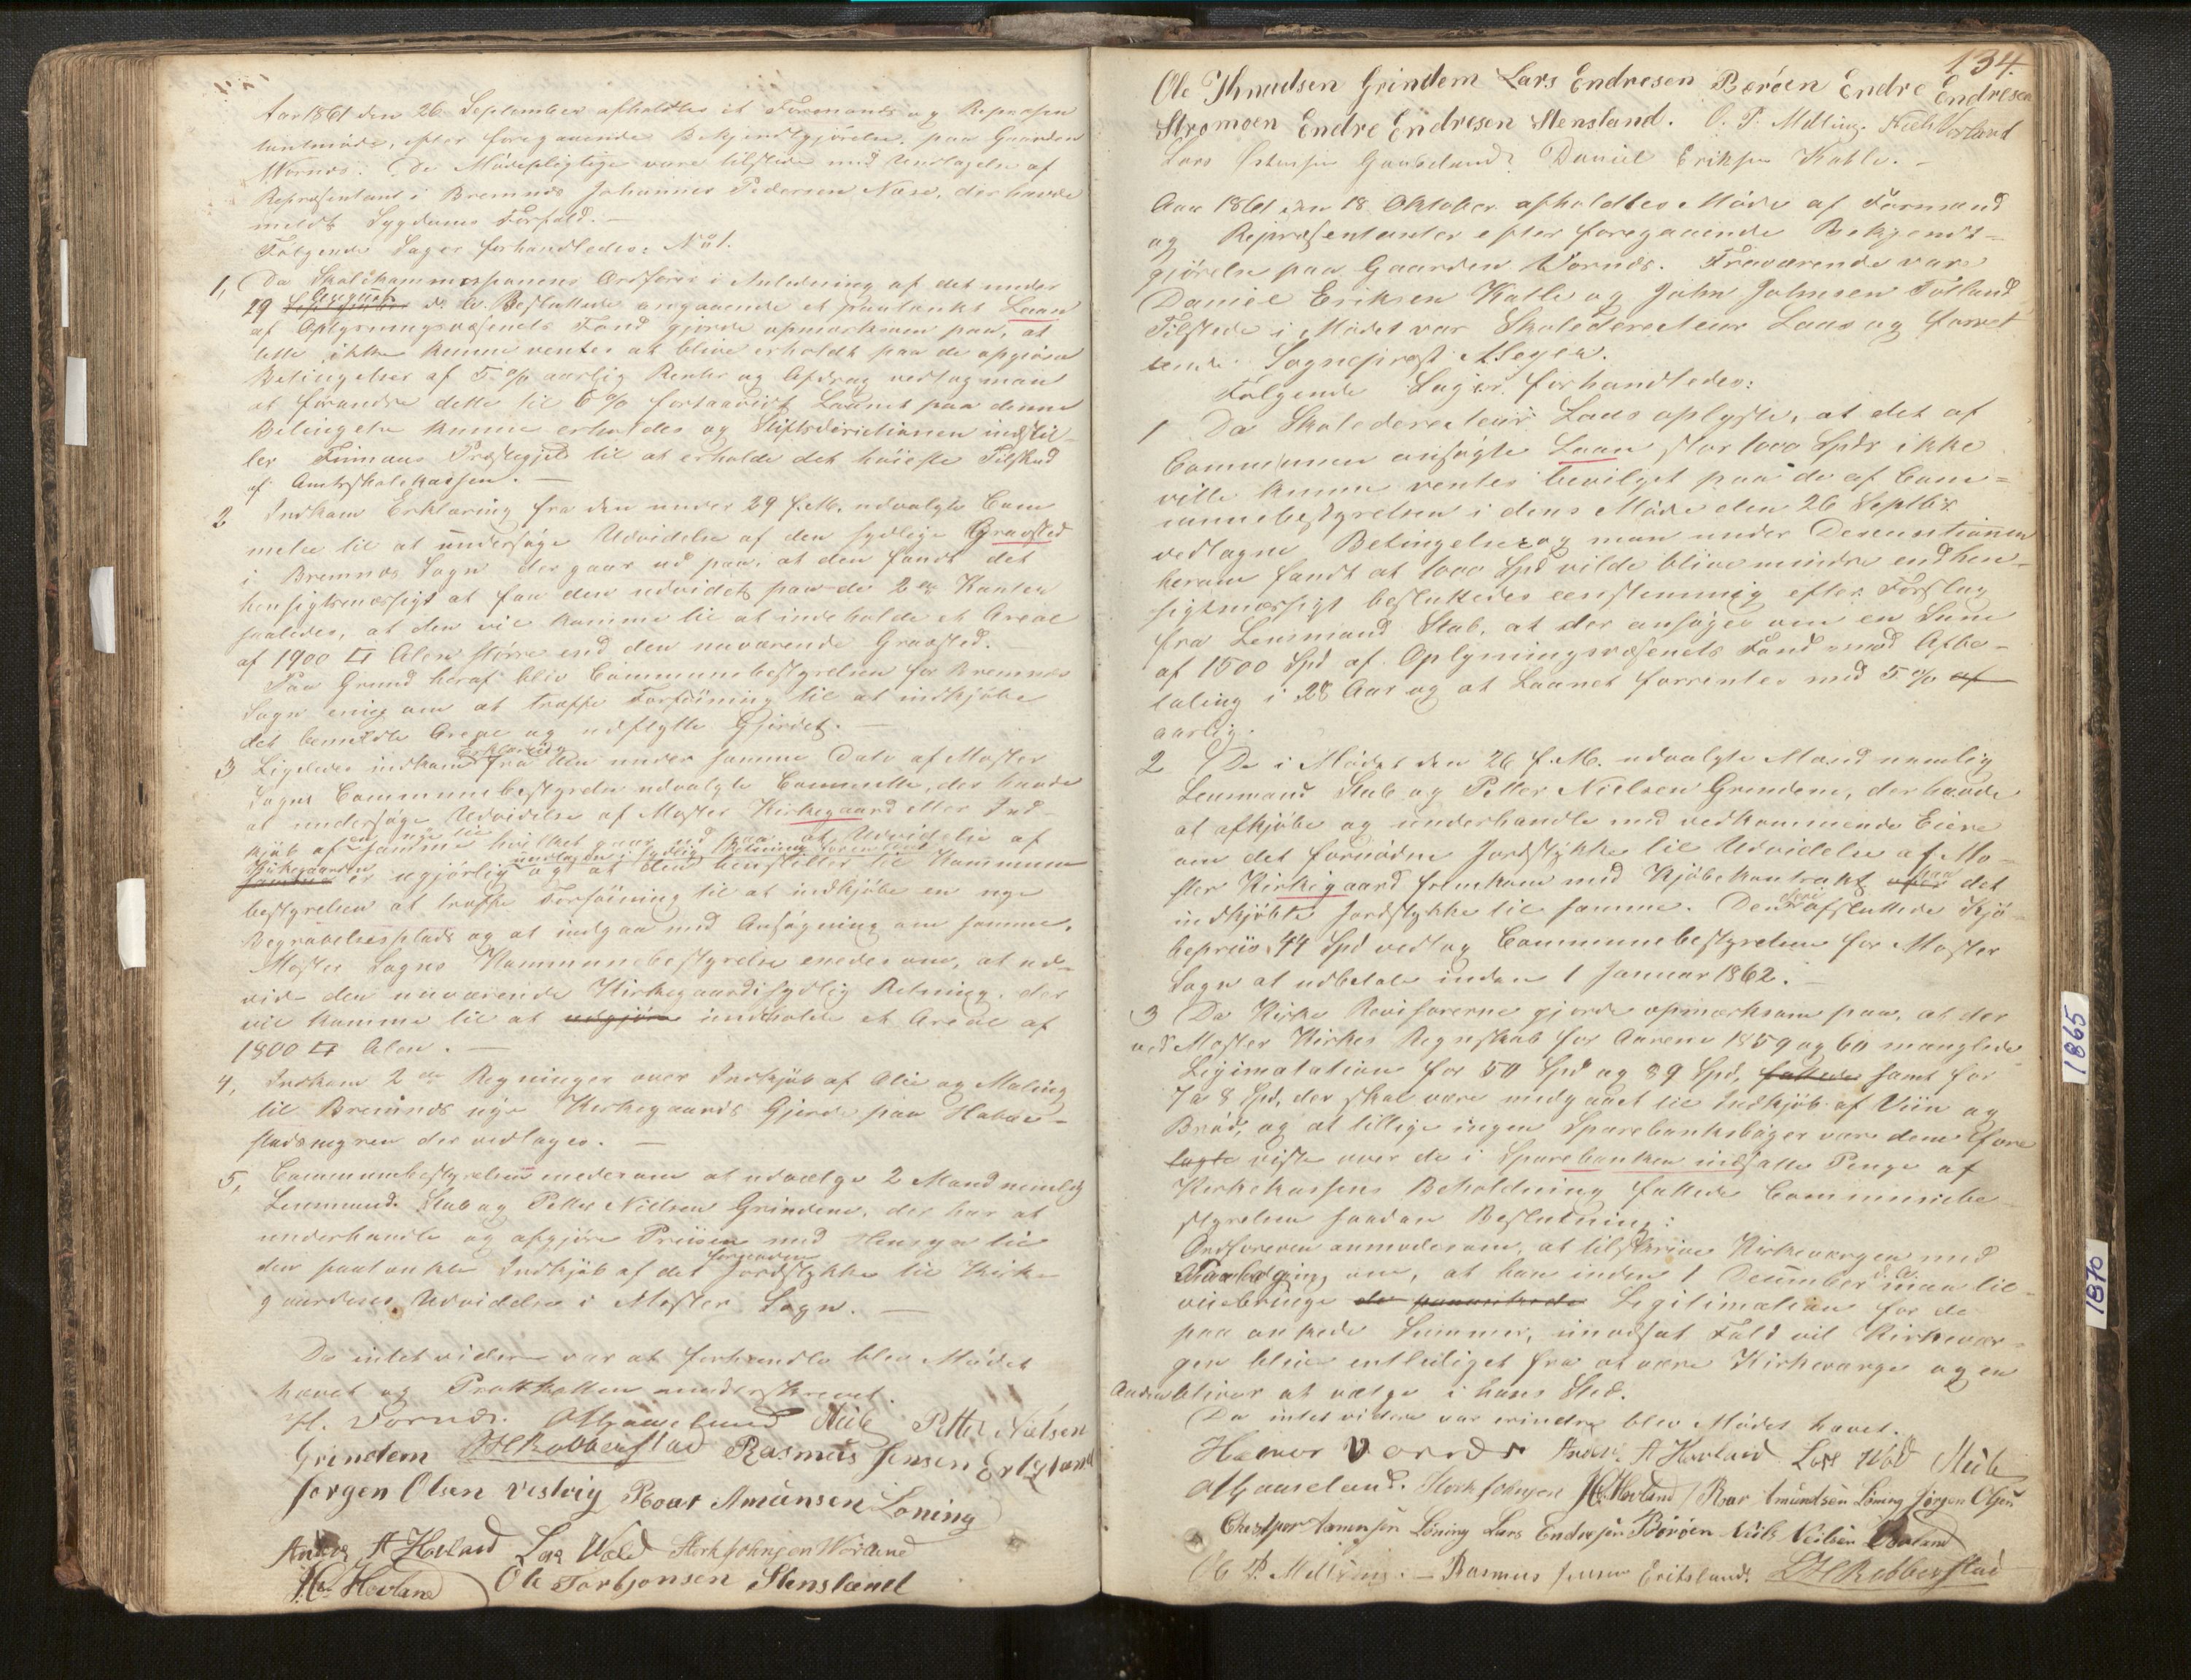 Aar 1861 den 26 September afholdtes et Formands og Repræsen
tantmøde, efter foregaaende Bekjendtgjørelse, paa Gaarden
Vornæs. De Mødepligtige vare tilstede med Undtagelse af
Repræsentant i Bremnæs Johannes Pedersen Næse, der havde
meldt Sygdoms Forfald. —
Følgende Sager forhandledes: No 1.
1, Da Skolekommissionens Ordfører i Anledning af det under
29 August d. A. Besluttede angaaende et paatænkt Laan
af Oplysningsvæsenets Fond gjorde opmærksom paa, at
dette ikke kunne ventes at blive erholdt paa de opgivne
Betingelser af 5 % aarlig Renter og Afdrag vedtog man
at forandre dette til 6 % forsaavidt Laanet paa denne
Betingelse kunne erholdes og Stiftsdirectionen indstil-
ler Finnaas Præstegjeld til at erholde det høieste Tilskud
af Amtsskolekassen. —
2 Indkom Erklæring fra den under 29 f. M. udvalgte Com
mitee til at undersøge Udvidelse af den sydlige Gravsted
i Bremnæs Sogn der gaar ud paa, at den fandt det
hensigtsmæssigt at faa den udvidet paa de 2de Kanter
saaledes, at den vil komme til at indeholde et Areal
af 1900 □ Alen større end den nuværende Gravsted.
Paa Grund heraf blev Communebestyrelsen for Bremnæs
Sogn enig om at træffe Forføining til at indkjøbe
det bemeldte Areal og udflytte Gjerdet. —
3 Ligeledes indkom Erklæring fra den under samme Dato af Moster
Sogns Communebestyrelse udvalgte Committee, der havde
at undersøge Udvidelse af Moster Kirkegaard eller Ind-
kjøb af en nye til samme hvilket gaar ud paa at Udvidelse af
Kirkegaarden er ugjørlig undtagen i sydlig Retning og at den henstiller til Kommune
bestyrelsen at træffe Forføining til at indkjøbe en nye
Begravelsesplads og at indgaa med Ansøgning om samme.
Moster Sogns Kommunebestyrelse enedes om, at ud-
vide den nuværende Kirkegaard i sydlig Retning, der
vil komme til at udgjøre indeholde et Areal af
1800 □ Alen. —
4, Indkom 2de Regninger over Indkjøb af Olie og Maling
til Bremnæs nye Kirkegaards Gjerde paa
der vedtages. —
5, Communebestyrelsen enedes om at udvælge 2 Mænd nemlig
Lensmand Stub og Petter Nielsen Grindem, der har at
underhandle og afgjøre Priisen med Hensyn til
den paatænkte Indkjøb af det fornødne Jordstykke til Kirke
gaardens Udvidelse i Moster Sogn. —
Da intet videre var at forhandle blev Mødet
hævet og Protokollen underskrevet.
H. Vornæs. O Gaaseland Stub Petter Nielsen
Grindem H Robberstad Rasmus Jensen Eritsland
Jørgen Olsen Vestvig Roar Amunsen Løning
Anders A Hovland Lars Wold Stork Johnsen Worland
H. Hovland Ole Torbjønsen Stensland
134.
Ole Knudsen Grindem Lars Endresen Børøen Endre Endresen
Strømøen Endre Endresen Stensland. O. P. Melling. Niels Vorland
Lars Gaaseland Daniel Eriksen Katle. —
Aar 1861 den 18 Oktober afholdtes Møde af Formænd
og Repræsentanter efter foregaaende Bekjendt-
gjørelse paa Gaarden Vornæs. Fraværende var
Daniel Eriksen Katle og John Johnsen Folland
Tilstede i Mødet var Skoledirecteur Laas og forret
tende Sogneprest Meyer.
Følgende Sager forhandledes:
1 Da Skoledirecteur Laas oplyste, at det af
Communen ansøgte Laan stor 1000 Spdr ikke
ville kunne ventes bevilget paa de af Com=
munebestyrelsen i dens Møde den 26 Septbr
vedtagne Betingelser og man under Discussionen
herom fandt at 1000 Spd vilde blive mindre end hen-
sigtmæssigt besluttedes eenstemmig efter Forslag
fra Lensmand Stub, at der ansøges om en Sum
af 1500 Spd af Oplysningsvæsenets Fond mod Afbe-
taling i 28 Aar og at Laanet forrentes med 5 % af
aarlig.
2 De i Mødet den 26 f. M. udvalgte Mænd nemlig
Lensmand Stub og Petter Nielsen Grindem, der havde
at afkjøbe og underhandle med vedkommende Eiere
om det fornødne Jordstykke til Udvidelse af Mo-
ster Kirkegaard fremkom med Kjøbekontrakt over paa det
indkjøbte Jordstykke til samme. Den deri afsluttede Kjø
bepriis 44 Spd vedtog Communebestyrelsen for Moster
Sogn at udbetale inden 1 Januar 1862. —
3 Da Kirke Revisorerne gjorde opmærksom paa, at der
ved Moster Kirkes Regnskab for Aarene 1859 og 60 manglede
Ligimatation for 50 Spd og 89 Spd, fattedes samt for
7 a 8 Spd, der skal være medgaaet til Indkjøb af Viin og
Brød, og at tillige ingen Sparebanksbøger vare dem fore
lagte viste over de i Sparebanken indsatte Penge af
Kirkekassens Beholdning fattede Communebe
styrelsen saadan Beslutning:
Ordføreren anmodes om, at tilskrive Kirkevergen med
om, at han inden 1 December d. A. maa til-
veiebringe de paaankede Legitimation for de
paaankede Summer, imodsat Fald vil Kirkever-
gen blive entlediget fra at være Kirkeverge og en
Anden bliver at vælge i hans Sted.
Da intet videre var erindre blev Mødet hævet.
Hævor Vornæs Anders A Hovland Lars Wold Stub
O Gaaseland. Stork Johnsen H. Hovland Roar Amundsen Løning Jørgen Olsen
Christopher Løning Lars Endresen Børøen Niels Nielsen Vorland
O P. Melling. — Rasmus Jensen Eritsland. H Robberstad
1865
1870